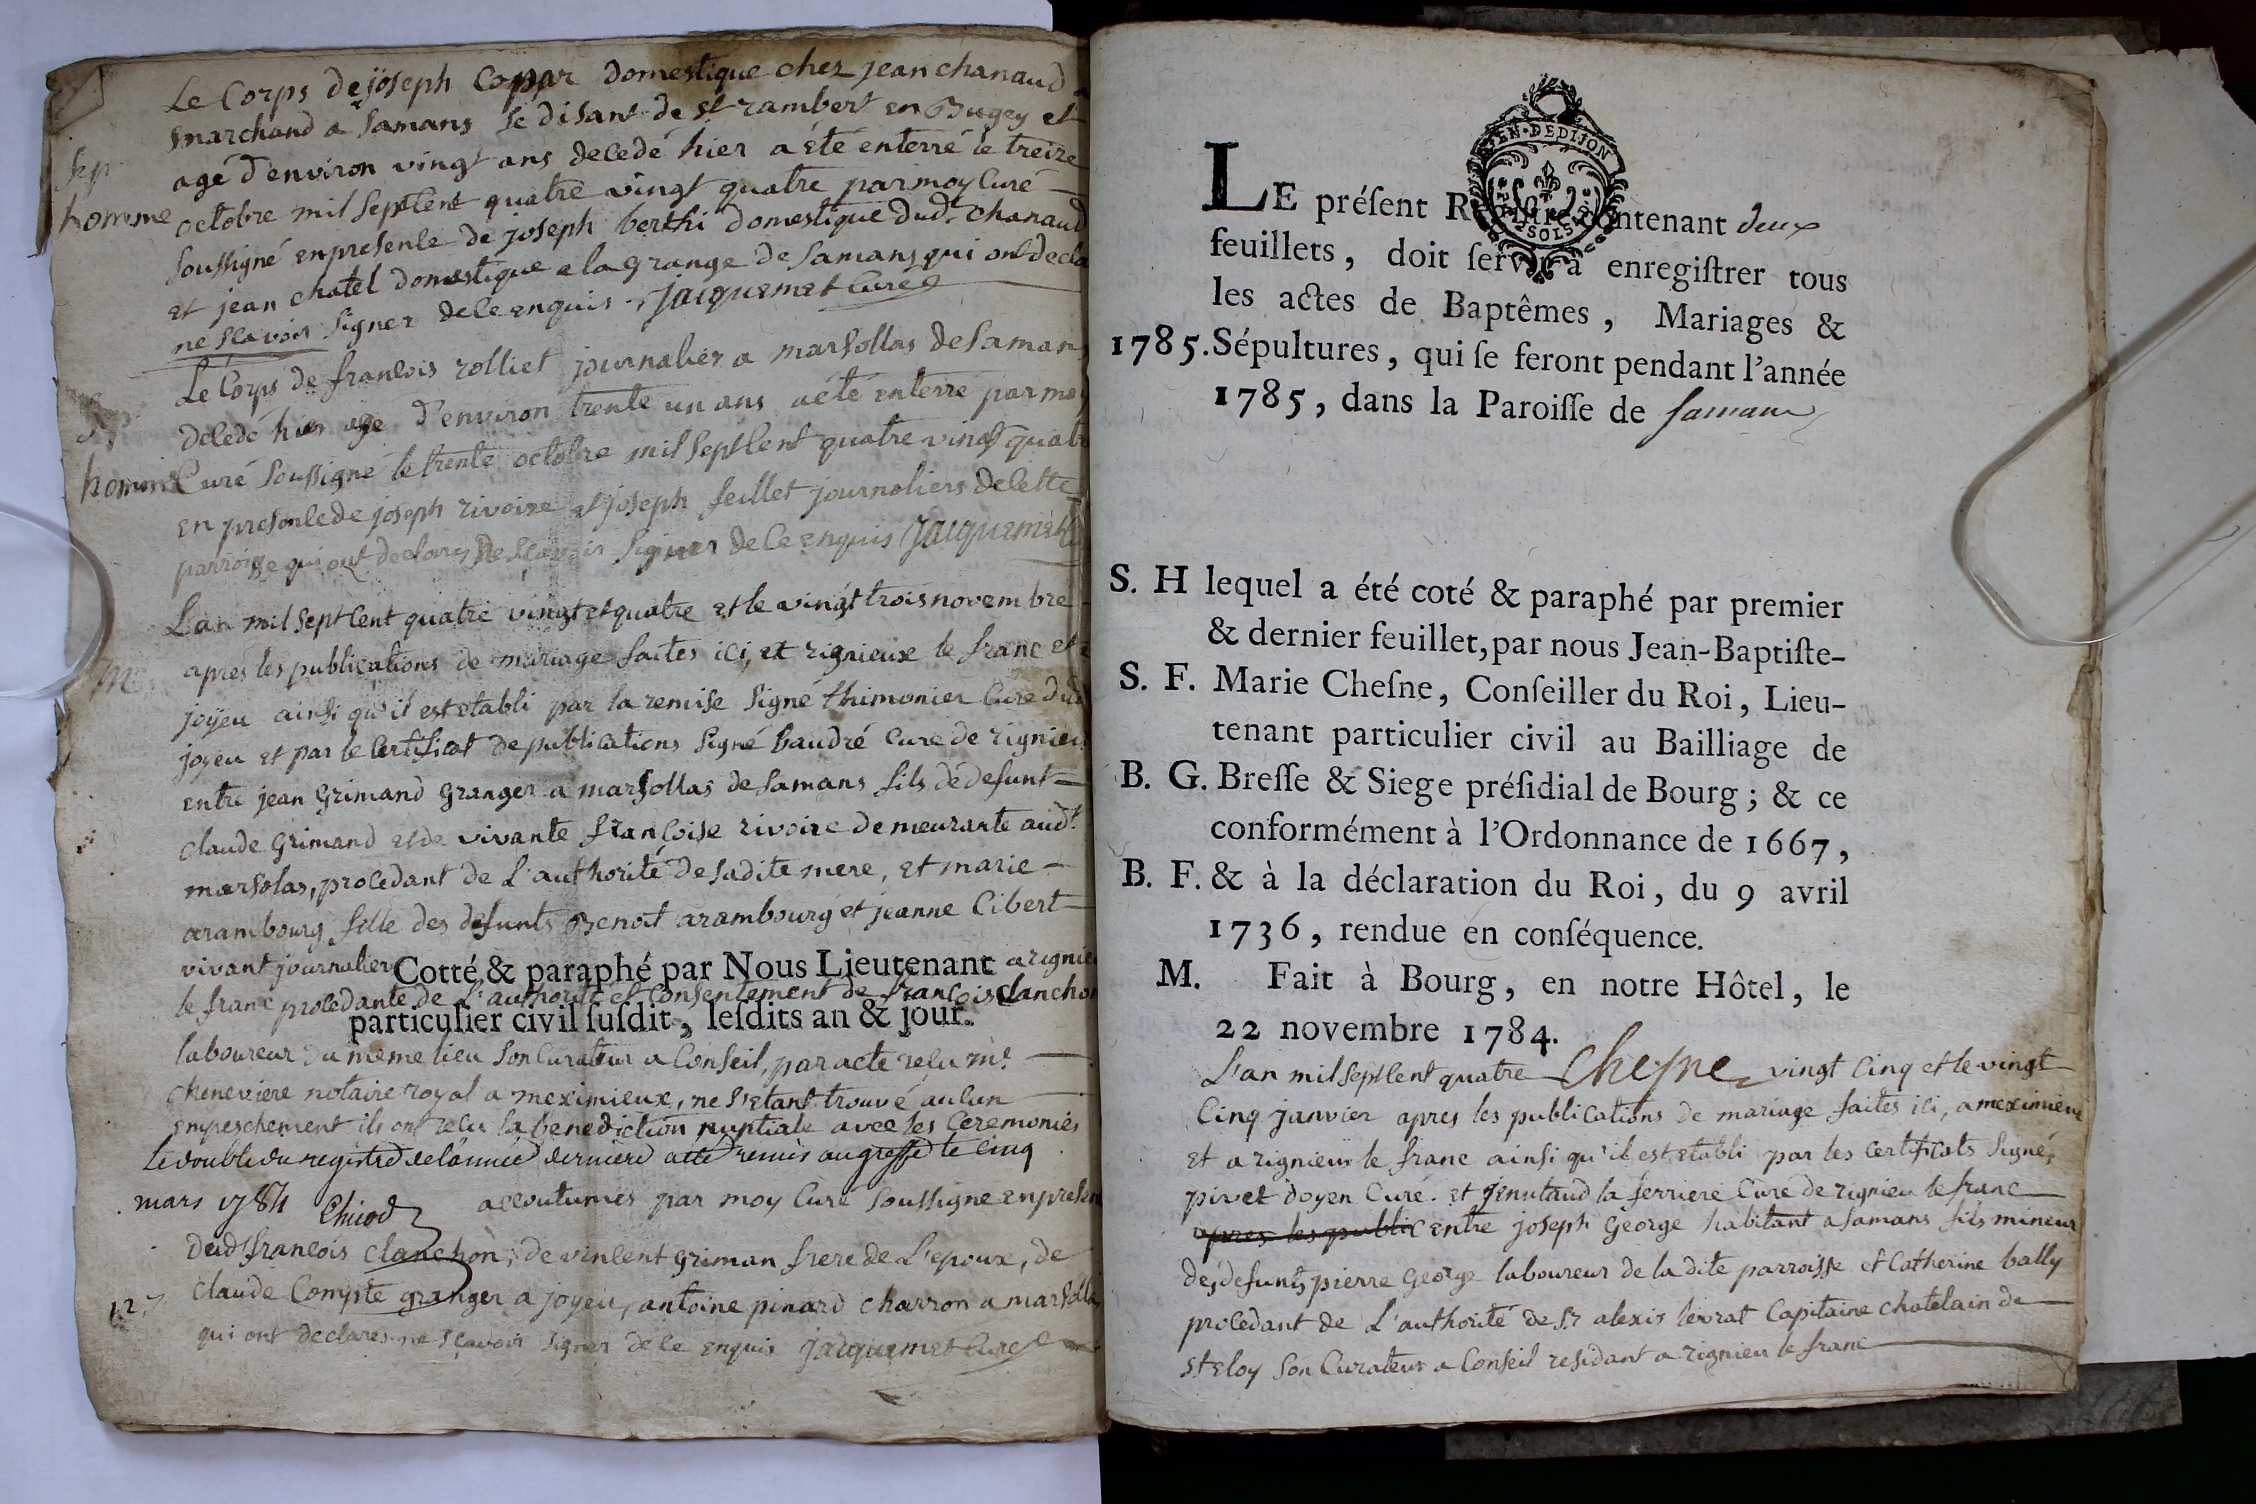 Le Corps de joseph Copar domestique chez jean chanaud
marchand a Samans se disant de st rambert en Bugey et
agé d'environ vingt ans decedé hier a été enterré le treize
Sep
homme
octobre mil septcent quatre vingt quatre par moy Curé
soussigné en presence de joseph berthi domestique dudt chanaud
et jean chatel domestique a la grange de Samans qui ont decla
ne sçavoir signer de ce enquis. jacquemet Curé
Le Corps de francois rolliet journalier a marsollas de Samans
decedé hier agé d'environ trente un ans a été enterré par moy
Sep
homme
Curé soussigné le trente octobre mil septcent quatre vingt quatre
en presence de joseph rivoire et joseph feillet journaliers de cette
parroisse qui ont declarés ne sçavoir signer de ce enquis jacquemet
L'an mil septcent quatre vingt et quatre et le vingt trois novembre
M.
apres les publications de mariage faites ici, et rignieux le franc et a
joyeu ainsi qu'il est etabli par la remise signé thimonier Curé dud
joyeu et par le Certificat de publications signé baudré Curé de rignieu
entre jean Grimand Granger a marsollas de Samans fils de defunt
claude Grimand et de vivante françoise rivoire demeurante audt
marsolas, procedant de L'authorité de sadite mere, et marie
arambourg fille des defunts Benoit arambourg et jeanne Cibert
vivant journalier Cotté & paraphé par Nous Lieutenant a rignieu
le franc procedante de L'authorité et consentement de francois clanchon
particulier civil ſuſdit, leſdits an & jour.
laboureur du meme lieu son Curateur a Conseil, par acte reçu me
cheneviere notaire royal a meximieux, ne s'etant trouvé aucun
empeschement ils ont reçu la benediction nuptiale avec les Ceremonies
Le double du registre de l'année derniere a été remis au greffe le cinq
mars 1784 Chicod
accoutumés par moy Curé soussigné en presence
dudt francois clanchon, de vincent griman frere de L'epoux, de
claude Compte granger a joyeu, antoine pinard charron a marsollas
12.
qui ont declarés ne sçavoir signer de ce enquis jacquemet Curé
EN DE DIJON
SOLS
LE préſent Regiſtre contenant deux
feuillets, doit ſervir à enregiſtrer tous
les actes de Baptêmes, Mariages &
1785. Sépultures, qui ſe feront pendant l'année
1785, dans la Paroiſſe de Samans
S. H lequel a été coté & paraphé par premier
& dernier feuillet, par nous Jean-Baptiſte-
S. F. Marie Cheſne, Conſeiller du Roi, Lieu-
tenant particulier civil au Bailliage de
B. G. Breſſe & Siege préſidial de Bourg; & ce
conformément à l'Ordonnance de 1667,
B. F. & à la déclaration du Roi, du 9 avril
1736, rendue en conſéquence.
M. Fait à Bourg, en notre Hôtel, le
22 novembre 1784.
L'an mil septcent quatre Chesne vingt Cinq et le vingt
Cinq janvier apres les publications de mariage faites ici, a meximieux
et a rignieux le franc ainsi qu'il est etabli par les Certificats signés
pivet doyen Curé. et jenutaud la ferriere Curé de rignieu le franc
apres les public entre joseph George habitant a Samans fils mineur
des defunts pierre George laboureur de la dite parroisse et Catherine bally
procedant de L'authorité de Sr alexis levrat Capitaine chatelain de
st Eloy son Curateur a Conseil residant a rignieu le franc